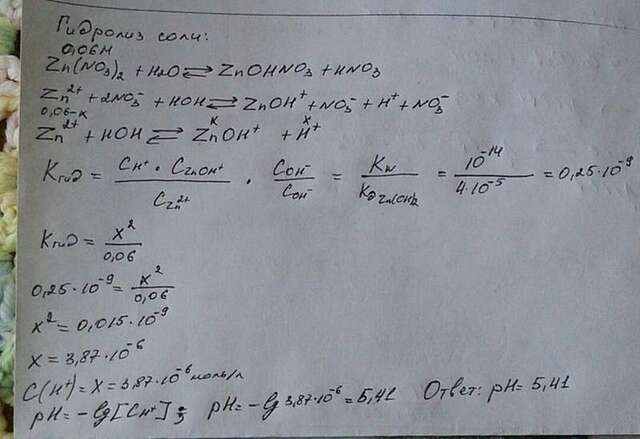 Гидролиз соли:
0,06М
Zn(NO₃)₂ + H₂O ⇄ ZnOHNO₃ + HNO₃
Zn²⁺ + 2NO₃⁻ + HOH ⇄ ZnOH⁺ + NO₃⁻ + H⁺ + NO₃⁻
0,06-x x x
Zn²⁺ + HOH ⇄ ZnOH⁺ + H⁺
Kгид = (CH⁺ · CZnOH⁺)/(CZn²⁺) · COH⁻/COH⁻ = Kw/KДZn(OH)₂ = 10⁻¹⁴/4·10⁻⁵ = 0,25·10⁻⁹
Kгид = x²/0,06
0,25·10⁻⁹ = x²/0,06
x² = 0,015·10⁻⁹
x = 3,87·10⁻⁶
C(H⁺) = x = 3,87·10⁻⁶ моль/л
pH = -lg[CH⁺]; pH = -lg 3,87·10⁻⁶ = 5,41 Ответ: pH = 5,41